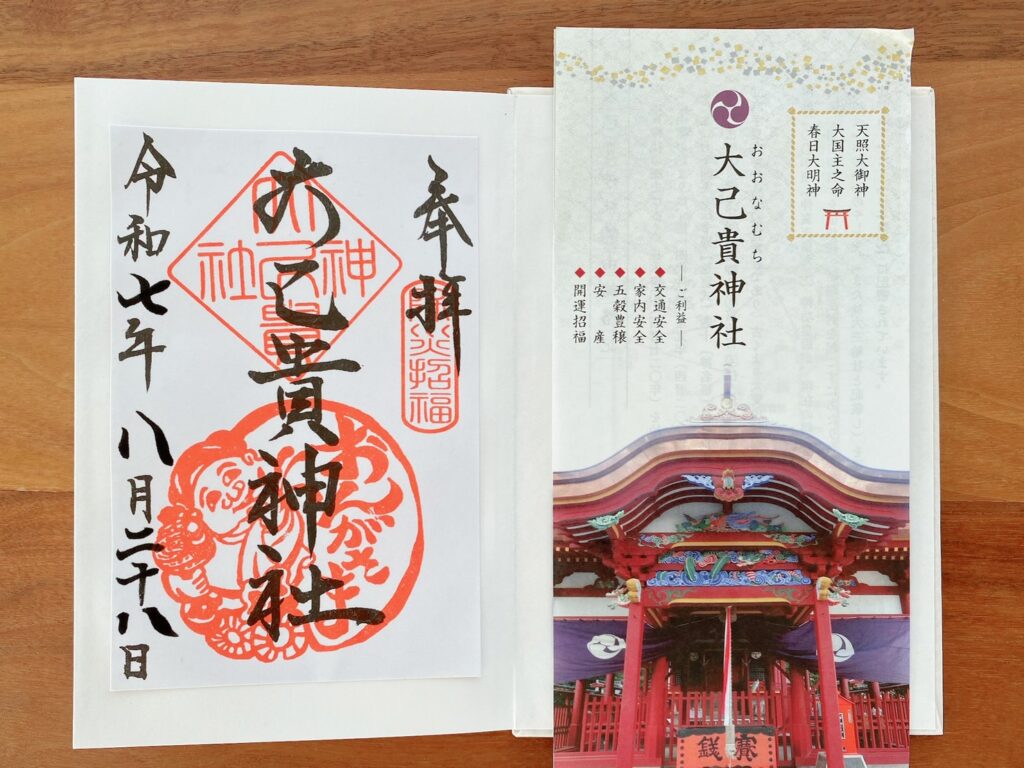 奉拝
招福
大己貴神社
令和七年八月二十八日
大己貴神社
天照大御神
大国主之命
春日大明神
おおなむち
大己貴神社
ご利益
交通安全
家内安全
五穀豊穣
安産
開運招福
賽銭